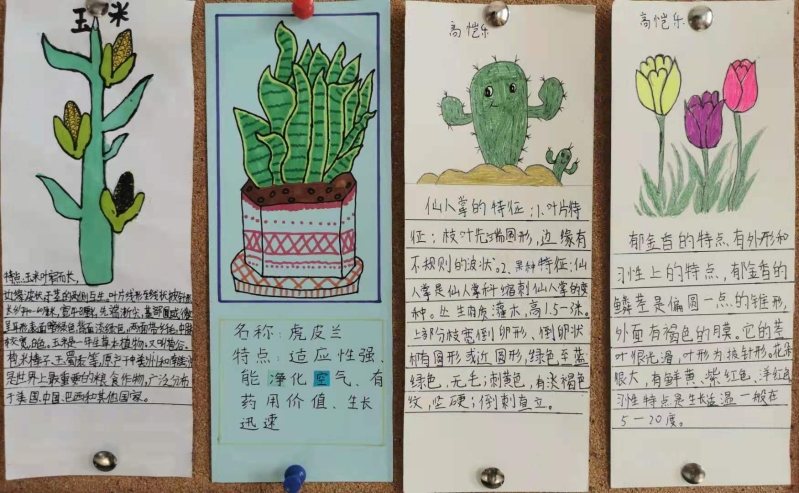 玉米
特点:玉米叶窄而长,
边缘波状,于茎的两侧互生,
呈
是世界上最重要的粮食作物,广泛分布
于美国.中国.巴西和其他国家。
名称:虎皮兰
特点:适应性强、
能净化空气、有
药用价值、生长
迅速
高恺乐
仙人掌的特征:1.叶片特
征:枝叶先端圆形,边缘有
不规则的波状。2.果种特征:仙
人掌是仙人掌科缩刺仙人掌的变
种。丛生肉质灌木,高1.5一3米。
上部分枝宽倒卵形、倒卵状
椭圆形或近圆形,绿色至蓝
绿色,无毛;刺黄色,有淡褐色
纹,坚硬;倒刺直立。
高恺乐
郁金香的特点有外形和
习性上的特点,郁金香的
鳞茎是偏圆一点的锥形,
外面有褐色的膜。它的茎
叶很光滑,叶形为披针形。花朵
很大,有鲜黄、紫红色、洋红色
习性特点是生长适温一般在
5—20度。